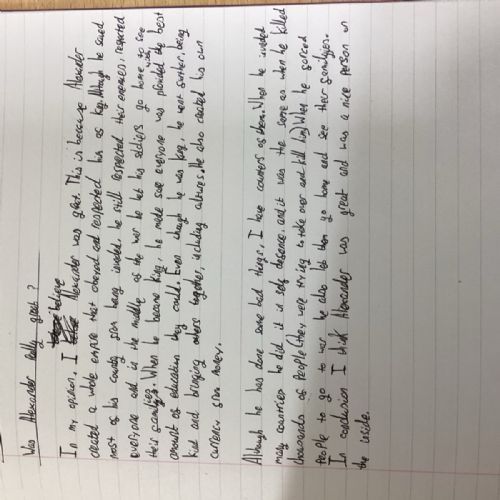 Was Alexander really great?
In my opinion, I believe Alexander was great. This is because Alexander
created a whole empire that obeyed and respected him as king. Although he saved
most of his country from being invaded, he still respected their enemies, respected
everyone and in the middle of the war he let his soldiers go home to see
their families. When he became king, he made sure everyone was provided with the best
amount of education they could. Even though he was king, he went further, being
kind and bringing others together, including cultures. He also created his own
currency from money.
Although he has done some bad things, I have counters of them. When he invaded
many countries he did it in self defence, and it was the same as when he killed
thousands of people (they were trying to take over and kill him) When he forced
people to go to war he also let them go home and see their families.
In conclusion I think Alexander was great and was a nice person on
the inside.